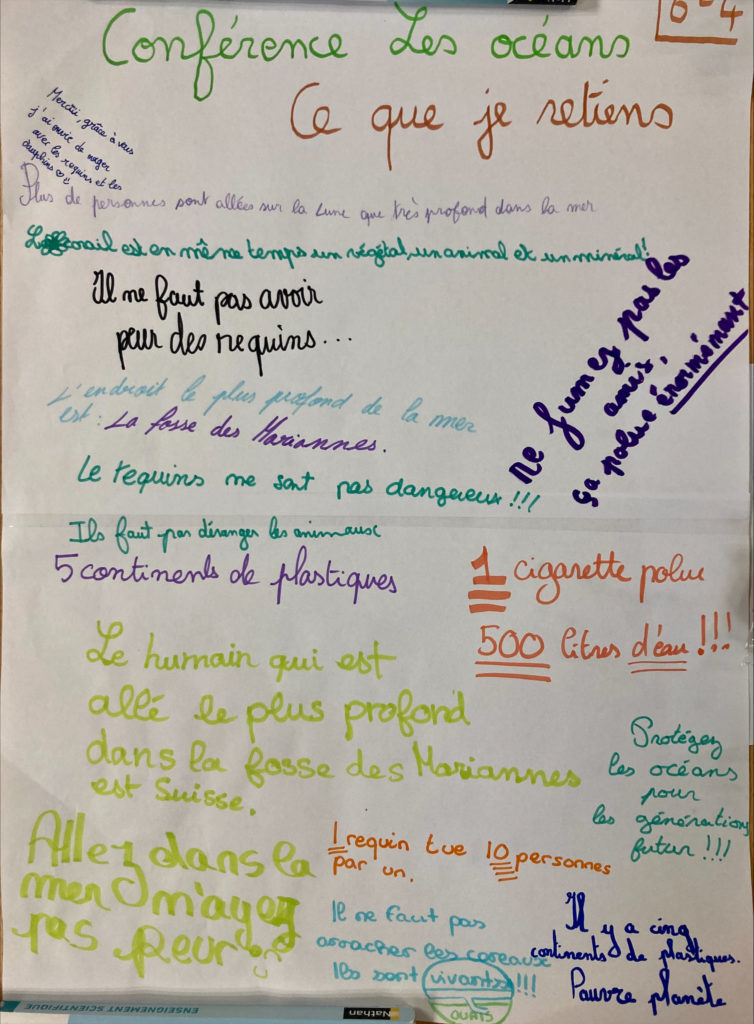 6°4
Conférence Les océans
Ce que je retiens
Mercii, grâce à vous
j'ai envie de nager
avec les requins et les
dauphins
Plus de personnes sont allées sur la Lune que très profond dans la mer
Le corail est en même temps un végétal, un animal et un minéral!
Il ne faut pas avoir
peur des requins...
ne fumez pas les
amis,
ça polue énormémant
L'endroit le plus profond de la mer
est: La fosse des Mariannes.
Le requins ne sont pas dangereux!!!
Ils faut pas déranger les animaux
5 continents de plastiques
1 cigarette polue
500 litres d'eau!!!
Le humain qui est
allé le plus profond
dans la fosse des Mariannes
est Suisse.
Protégez
les océans
pour
les générations
futur!!!
Allez dans la
mer n'ayez
pas peur
1 requin tue 10 personnes
par un.
Il ne faut pas
arracher les coreaux
Ils sont vivants!!!
OURS
Il y a cinq
continents de plastiques.
Pauvre planète
ENSEIGNEMENT SCIENTIFIQUE
Nathan